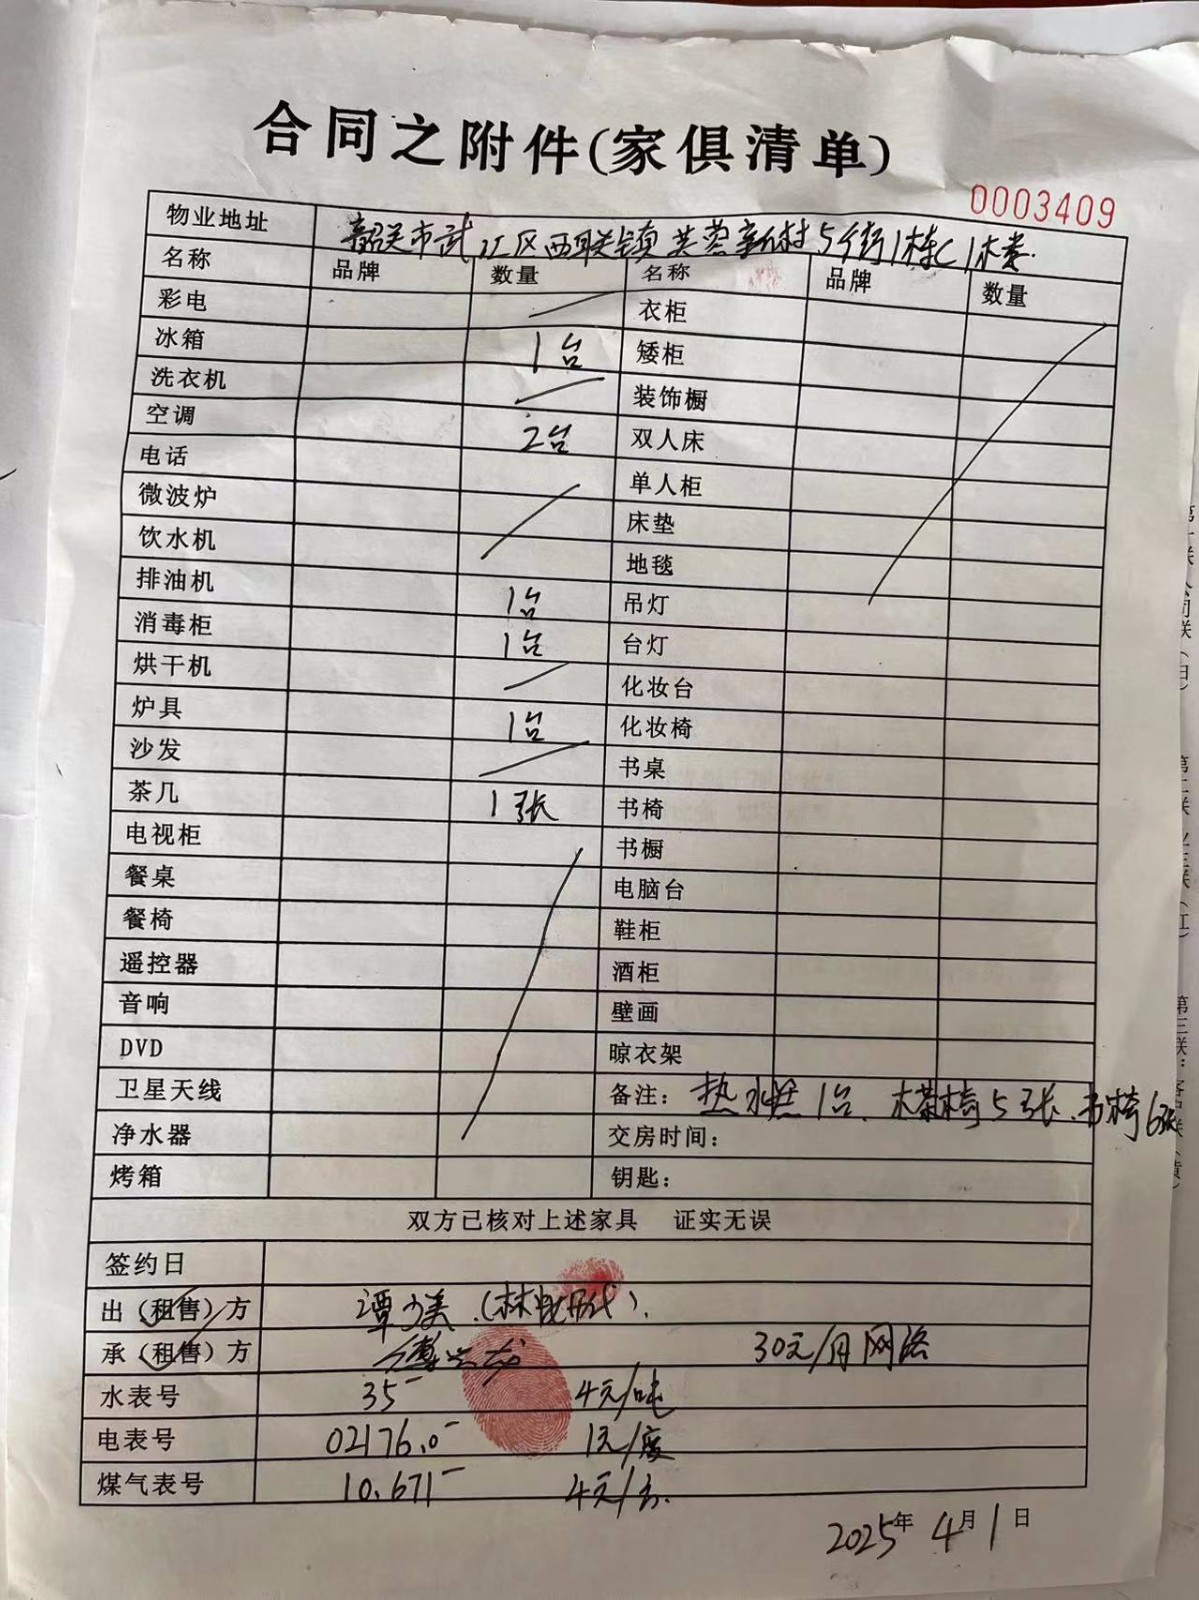 合同之附件(家俱清单)
0003409
物业地址 韶关市武江区西联镇芙蓉新村5街1栋C1楼
名称 品牌 数量 名称 品牌 数量
彩电 衣柜
冰箱 1台 矮柜
洗衣机 装饰橱
空调 2台 双人床
电话 单人柜
微波炉 床垫
饮水机 地毯
排油机 1台 吊灯
消毒柜 1台 台灯
烘干机 化妆台
炉具 1台 化妆椅
沙发 书桌
茶几 1张 书椅
电视柜 书橱
餐桌 电脑台
餐椅 鞋柜
遥控器 酒柜
音响 壁画
DVD 晾衣架
卫星天线 备注: 热水器1台、木茶椅5张、书椅6张
净水器 交房时间:
烤箱 钥匙:
双方已核对上述家具 证实无误
签约日
出(租售)方 谭少美(林 代).
承(租售)方 30元/月网络
水表号 35 4元/吨
电表号 02176.0 1元/度
煤气表号 10.671 4元/
2025年4月1日
第一联:公司联(白)
第二联:业主联(红)
第三联:客户联(黄)